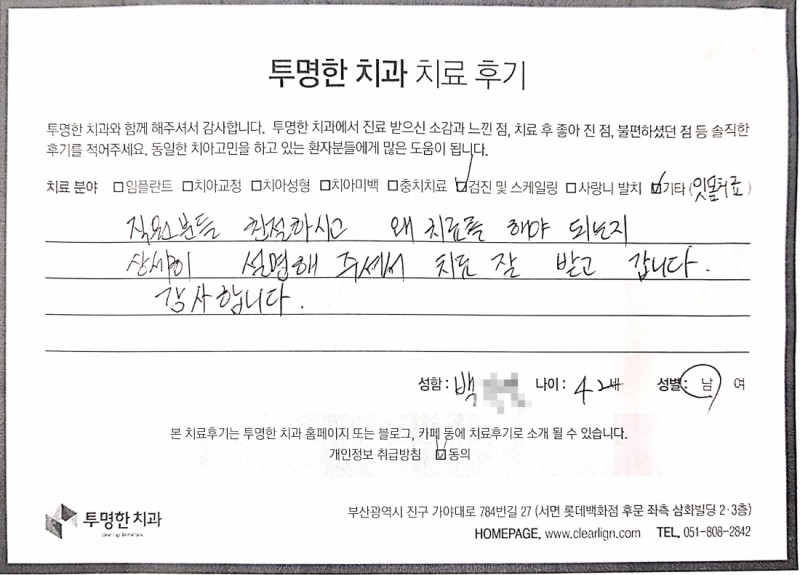 투명한 치과 치료 후기
투명한 치과와 함께 해주셔서 감사합니다. 투명한 치과에서 진료 받으신 소감과 느낀 점, 치료 후 좋아 진 점, 불편하셨던 점 등 솔직한
후기를 적어주세요. 동일한 치아고민을 하고 있는 환자분들에게 많은 도움이 됩니다.
치료 분야 □임플란트 □치아교정 □치아성형 □치아미백 □충치치료 ☑검진 및 스케일링 □사랑니 발치 ☑기타 (잇몸치료)
직원분들 친절하시고 왜 치료를 해야 되는지
상세히 설명해 주셔서 치료 잘 받고 갑니다.
감사합니다.
성함 : 백 나이 : 42세 성별 : 남 여
본 치료후기는 투명한 치과 홈페이지 또는 블로그, 카페 등에 치료후기로 소개 될 수 있습니다.
개인정보 취급방침 ☑동의
투명한 치과
부산광역시 진구 가야대로 784번길 27 (서면 롯데백화점 후문 좌측 삼화빌딩 2·3층)
HOMEPAGE. www.clearlign.com TEL. 051-808-2842